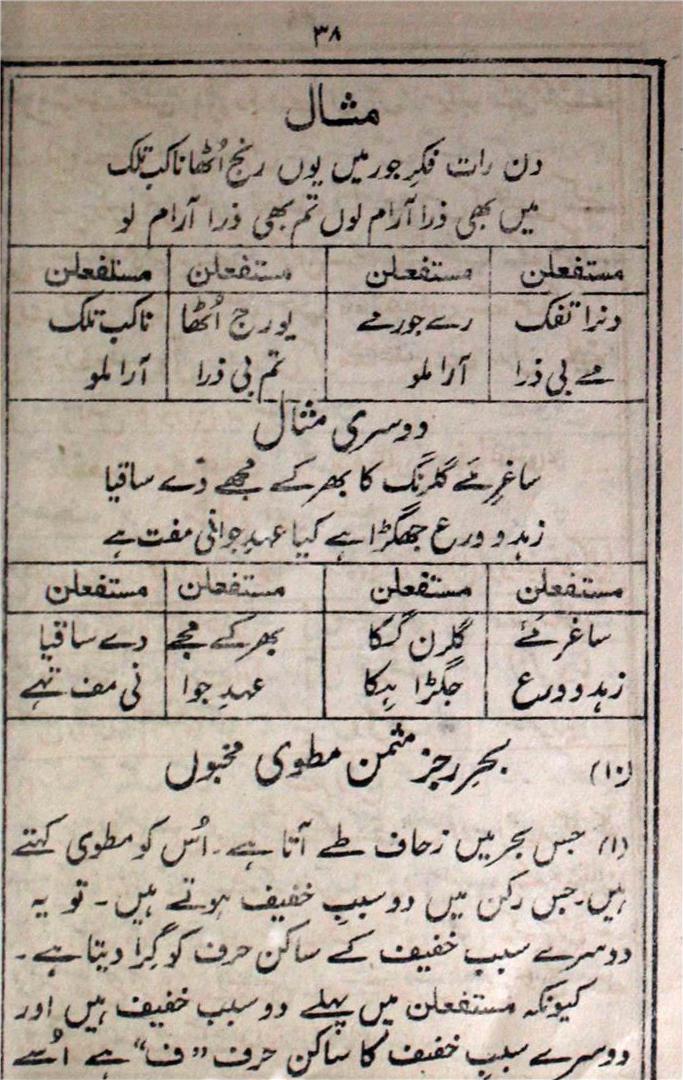 ۳۸
مثال
دن رات فکرِ جور میں یوں رنج اُٹھانا کب تلک
میں بھی ذرا آرام لوں تم بھی ذرا آرام لو
مستفعلن مستفعلن مستفعلن مستفعلن
دنرا تفک رے جورمے یورج اُٹھا ناکب تلک
مے بی ذرا آرا ملو تم بی ذرا آرا ملو
دوسری مثال
ساغرِ مَئے گلرنگ کا بھر کے مجھے دَے ساقیا
زہد و ورع جھگڑا ہے کیا عہدِ جوانی مفت ہے
مستفعلن مستفعلن مستفعلن مستفعلن
ساغر مَئے گلرن گکا بھر کے مجے دے ساقیا
زہد و ورع جگڑا ہکا عہدِ جوا نی مف تہے
(۱۰) بحرِ رجز مثمن مطوی مخبوں
(۱) جس بحر میں زحاف طے آتا ہے۔ اُس کو مطوی کہتے
ہیں۔ جس رکن میں دو سببِ خفیف ہوتے ہیں۔ تو یہ
دوسرے سببِ خفیف کے ساکن حرف کو گِرا دیتا ہے۔
کیونکہ مستفعلن میں پہلے دو سبب خفیف ہیں اور
دوسرے سببِ خفیف کا ساکن حرف "ف" ہے اُسے